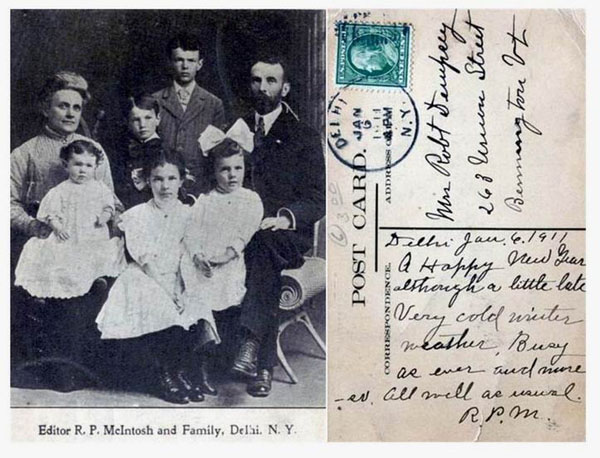 Editor R. P. McIntosh and Family, Delhi. N. Y.
DELHI
JAN
6
1911
4 PM
N.Y.
POST CARD.
ADDRESS
CORRESPONDENCE.
Robt Dempsey
263 Union Street
Bennington Vt
Delhi Jan. 6. 1911
A Happy New Year
although a little late
Very cold winter
weather. Busy
as ever and more
-so. All well as usual.
R.P.M.